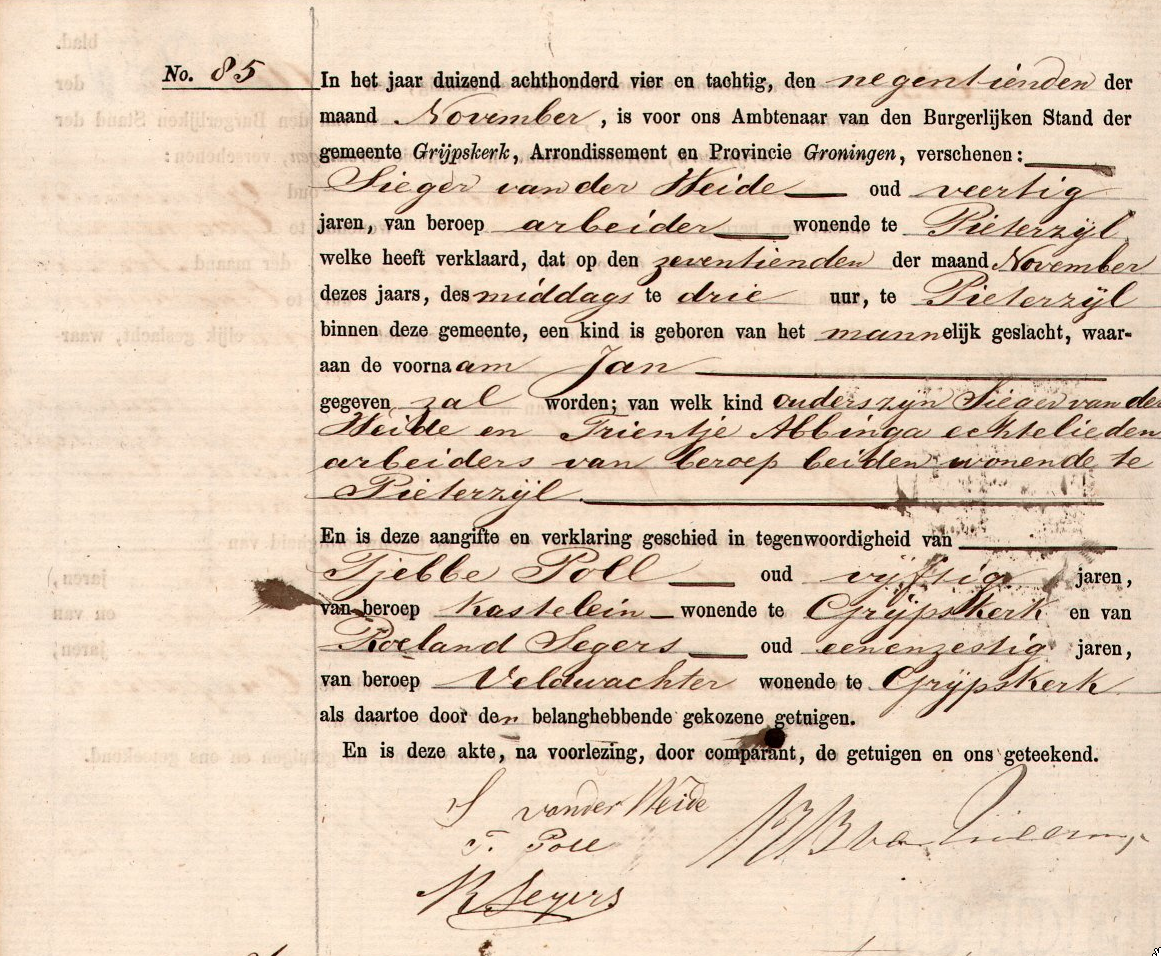 No. 85
In het jaar duizend achthonderd vier en tachtig, den negentienden der
maand November, is voor ons Ambtenaar van den Burgerlijken Stand der
gemeente Grijpskerk, Arrondissement en Provincie Groningen, verschenen:
Sieger van der Heide oud veertig
jaren, van beroep arbeider wonende te Pieterzijl
welke heeft verklaard, dat op den zeventienden der maand November
dezes jaars, des middags te drie uur, te Pieterzijl
binnen deze gemeente, een kind is geboren van het mannelijk geslacht, waar-
aan de voornaam Jan
gegeven zal worden; van welk kind ouders zijn Sieger van der
Heide en Trientje Abbinga echtelieden
arbeiders van beroep beiden wonende te
Pieterzijl
En is deze aangifte en verklaring geschied in tegenwoordigheid van
Tjebbe Poll oud vijftig jaren,
van beroep Kastelein wonende te Grijpskerk en van
Roeland Segers oud eenenzestig jaren,
van beroep Veldwachter wonende te Grijpskerk
als daartoe door den belanghebbende gekozene getuigen.
En is deze akte, na voorlezing, door comparant, de getuigen en ons geteekend.
S van der Heide
T. Poll
R Segers